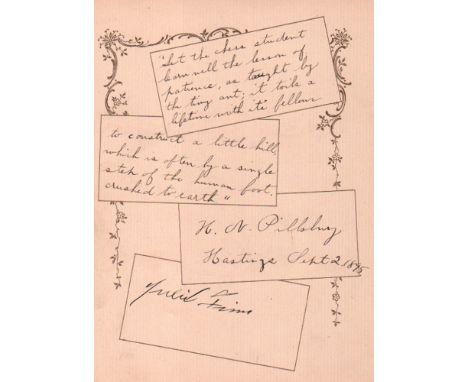 "Let the chess student
learn well the lesson of
patience, as taught by
the tiny ant; it toils a
lifetime with its fellows
to construct a little hill
which is often by a single
step of the human foot.
crushed to earth"
H. N. Pillsbury
Hastings Sept 2 1895